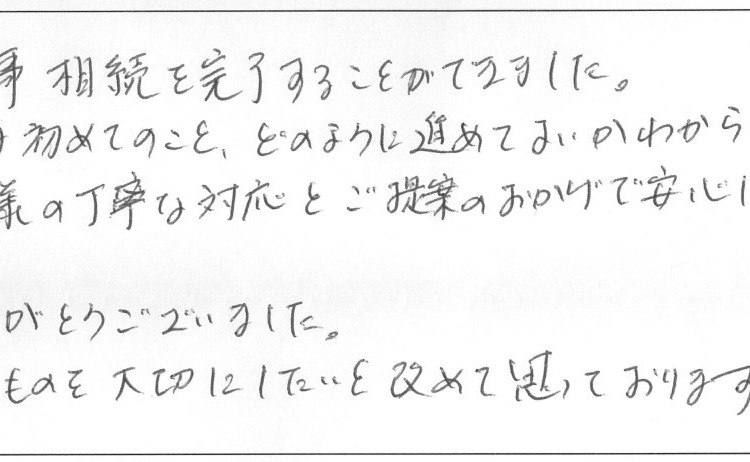 事 相続を完了することができました。
初めてのこと、どのように進めてよいかわから
様の丁寧な対応とご提案のおかげで安心し
がとうございました。
ものを大切にしたいと改めて思っております